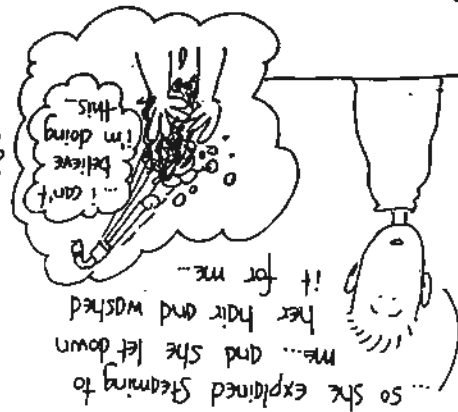 ... so she explained steaming to
me... and she let down
her hair and washed
it for me...
... i can't
believe
i'm doing
this...